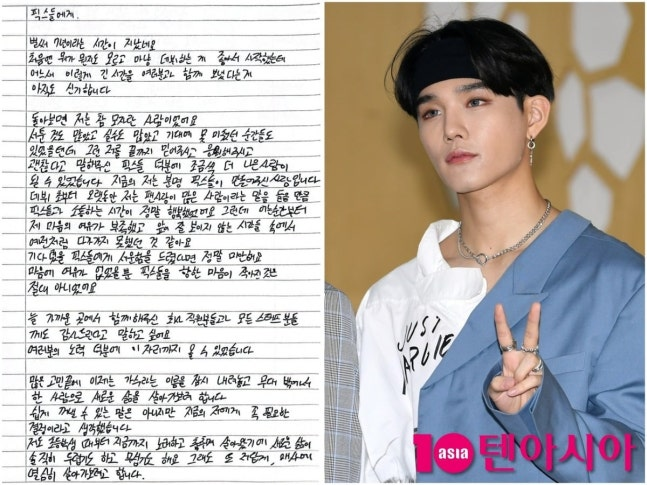 픽스들에게.
벌써 7년이라는 시간이 지났네요
처음엔 뭐가 뭔지도 모르고 마냥 데뷔하는 게 좋아서 시작했는데
어느새 이렇게 긴 시간을 여러분과 함께 보냈다는게
아직도 신기합니다
돌아보면 저는 참 모자란 사람이었어요
서툰 것도 많았고 실수도 많았고 기대에 못 미쳤던 순간들도
있었을텐데 그런 저를 끝까지 믿어주시고 응원해주시고
괜찮다고 말해주신 픽스들 덕분에 조금씩 더 나은사람이
될 수 있었습니다 지금의 저는 분명 픽스들이 만들어주신 사람입니다
데뷔 초부터 오랫동안 저는 팬사랑이 많은 사람이라는 말을 들을 만큼
픽스들과 소통하는 시간이 정말 행복했었어요 그런데 어느순간부터
제 마음의 여유가 부족했고 앞이 잘 보이지 않는 시간들 속에서
예전처럼 다가가지 못했던 것 같아요
기다렸을 픽스들에게 서운함을 드렸다면 정말 미안해요
마음에 여유가 없었을 뿐 픽스들을 향한 마음이 작아진것은
절대 아니었어요
늘 가까운 곳에서 함께해주신 회사 직원분들과 모든 스태프 분들
께도 감사드린다고 말하고 싶어요
여러분의 노력 덕분에 이 자리까지 올 수 있었습니다
많은 고민끝에 이제는 가수라는 이름을 잠시 내려놓고 무대 밖에서
한 사람으로 새로운 삶을 살아가보려 합니다
쉽게 꺼낼 수 있는 말은 아니지만 지금의 저에게 꼭 필요한
결정이라고 생각했습니다
저도 초등학생 때부터 지금까지 노래하고 춤추며 살아왔기에 새로운 삶이
솔직히 두렵기도 하고 무섭기도 해요 그래도 또 저답게, 매사에
열심히 살아가보려고 합니다.
JUST
10asia 텐아시아